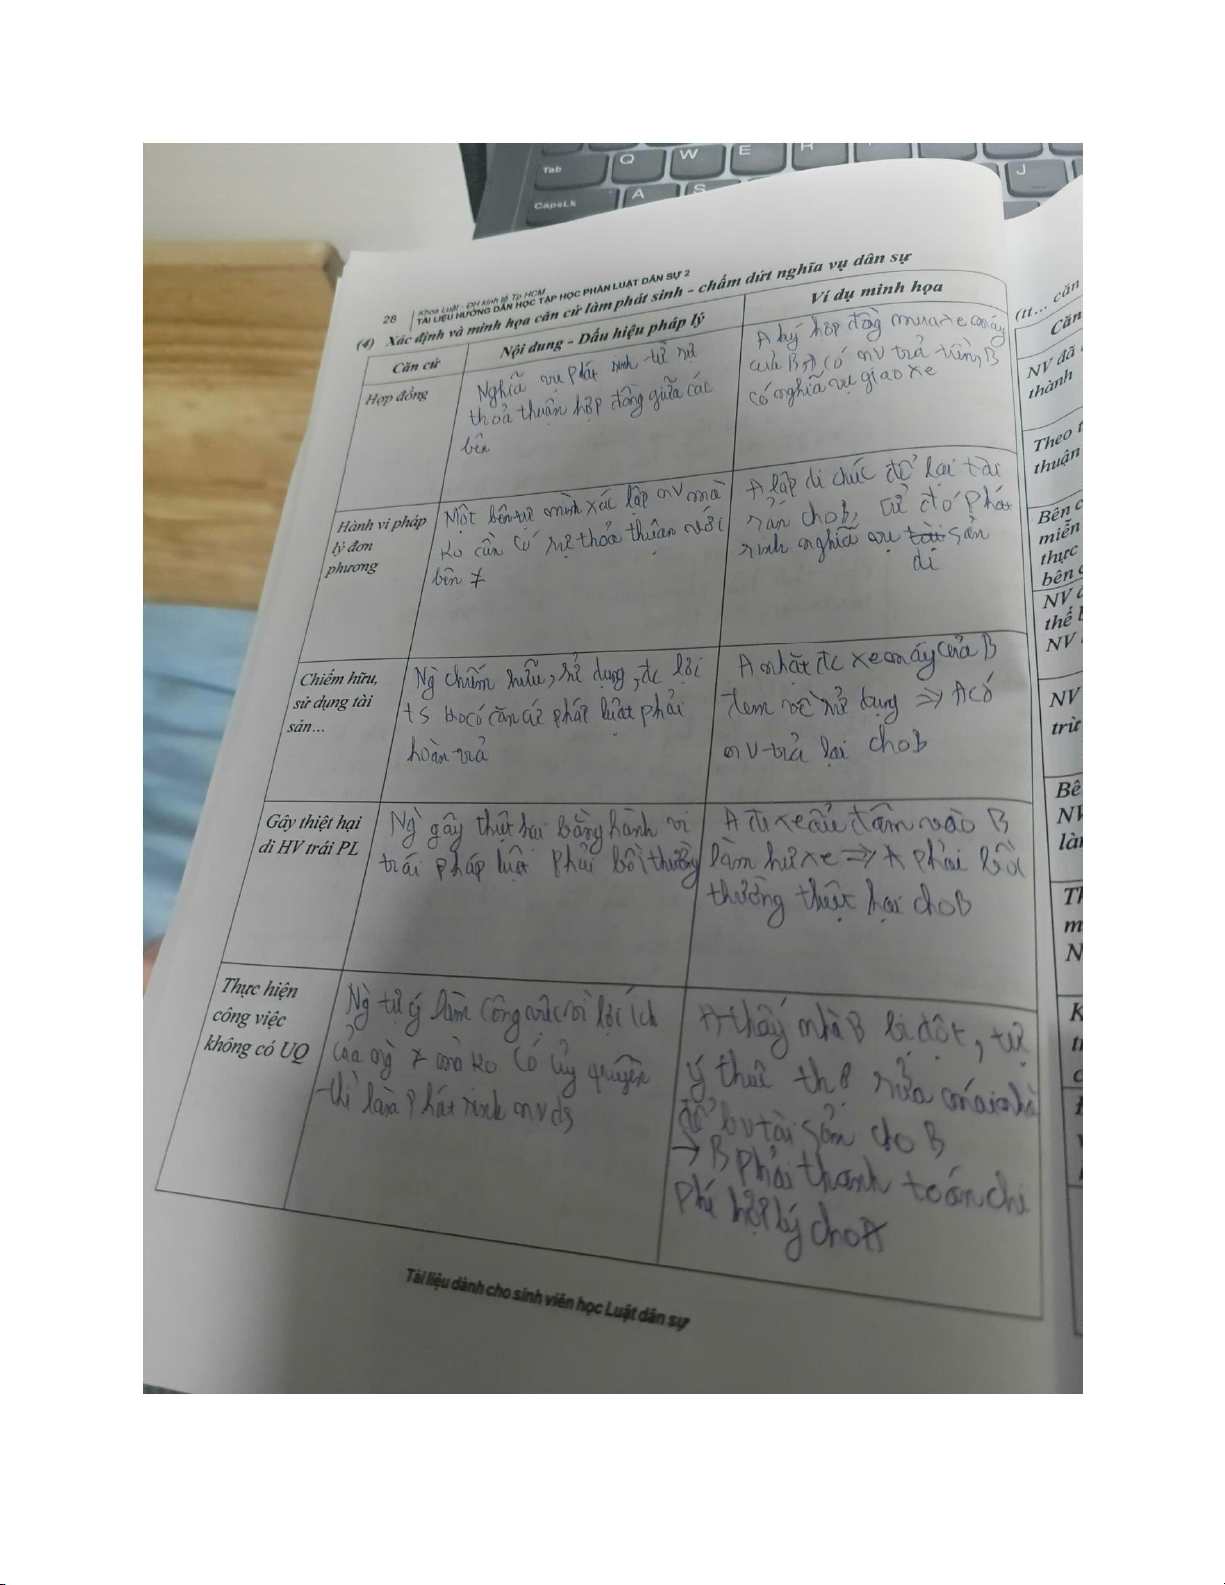 Tab Q W E R
CapsLk A S J
28 Khoa Luật - ĐH kinh tế Tp HCM
TÀI LIỆU HƯỚNG DẪN HỌC TẬP HỌC PHẦN LUẬT DÂN SỰ 2
(4) Xác định và minh họa căn cứ làm phát sinh - chấm dứt nghĩa vụ dân sự
Căn cứ
Nội dung - Dấu hiệu pháp lý
Ví dụ minh họa
Hợp đồng
Nghĩa vụ phát sinh từ sự
thoả thuận hợp đồng giữa các
bên
A ký hợp đồng mua xe máy
của B, A có nv trả tiền, B
có nghĩa vụ giao xe
Hành vi pháp
lý đơn
phương
Một bên tự mình xác lập nv mà
ko cần có sự thỏa thuận với
bên ≠
A lập di chúc để lại tài
sản cho B, từ đó phát
sinh nghĩa vụ tài sản
di
Chiếm hữu,
sử dụng tài
sản...
Ng chiếm hữu, sử dụng, đc lợi
ts ko có căn cứ pháp luật phải
hoàn trả
A nhặt đc xe máy của B
đem về sử dụng ⇒ A có
nv trả lại cho B
Gây thiệt hại
di HV trái PL
Ng` gây thiệt hại bằng hành vi
trái pháp luật phải bồi thường
A đi xe ẩu đâm vào B
làm hư xe ⇒ A phải bồi
thường thiệt hại cho B
Thực hiện
công việc
không có UQ
Ng` tự ý làm công việc vì lợi ích
của ng` ≠ mà ko có ủy quyền
thì làm phát sinh nv ds
A thấy nhà B bị dột, tự
ý thuê thợ sửa mái nhà
để bv tài sản cho B
→ B phải thanh toán chi
phí hợp lý cho A
Tài liệu dành cho sinh viên học Luật dân sự
(tt... căn
Căn
NV đã
thành
Theo t
thuận
Bên c
miễn
thực
bên c
NV
thế
NV
NV
trừ
Bê
NV
là
Th
m
N
K